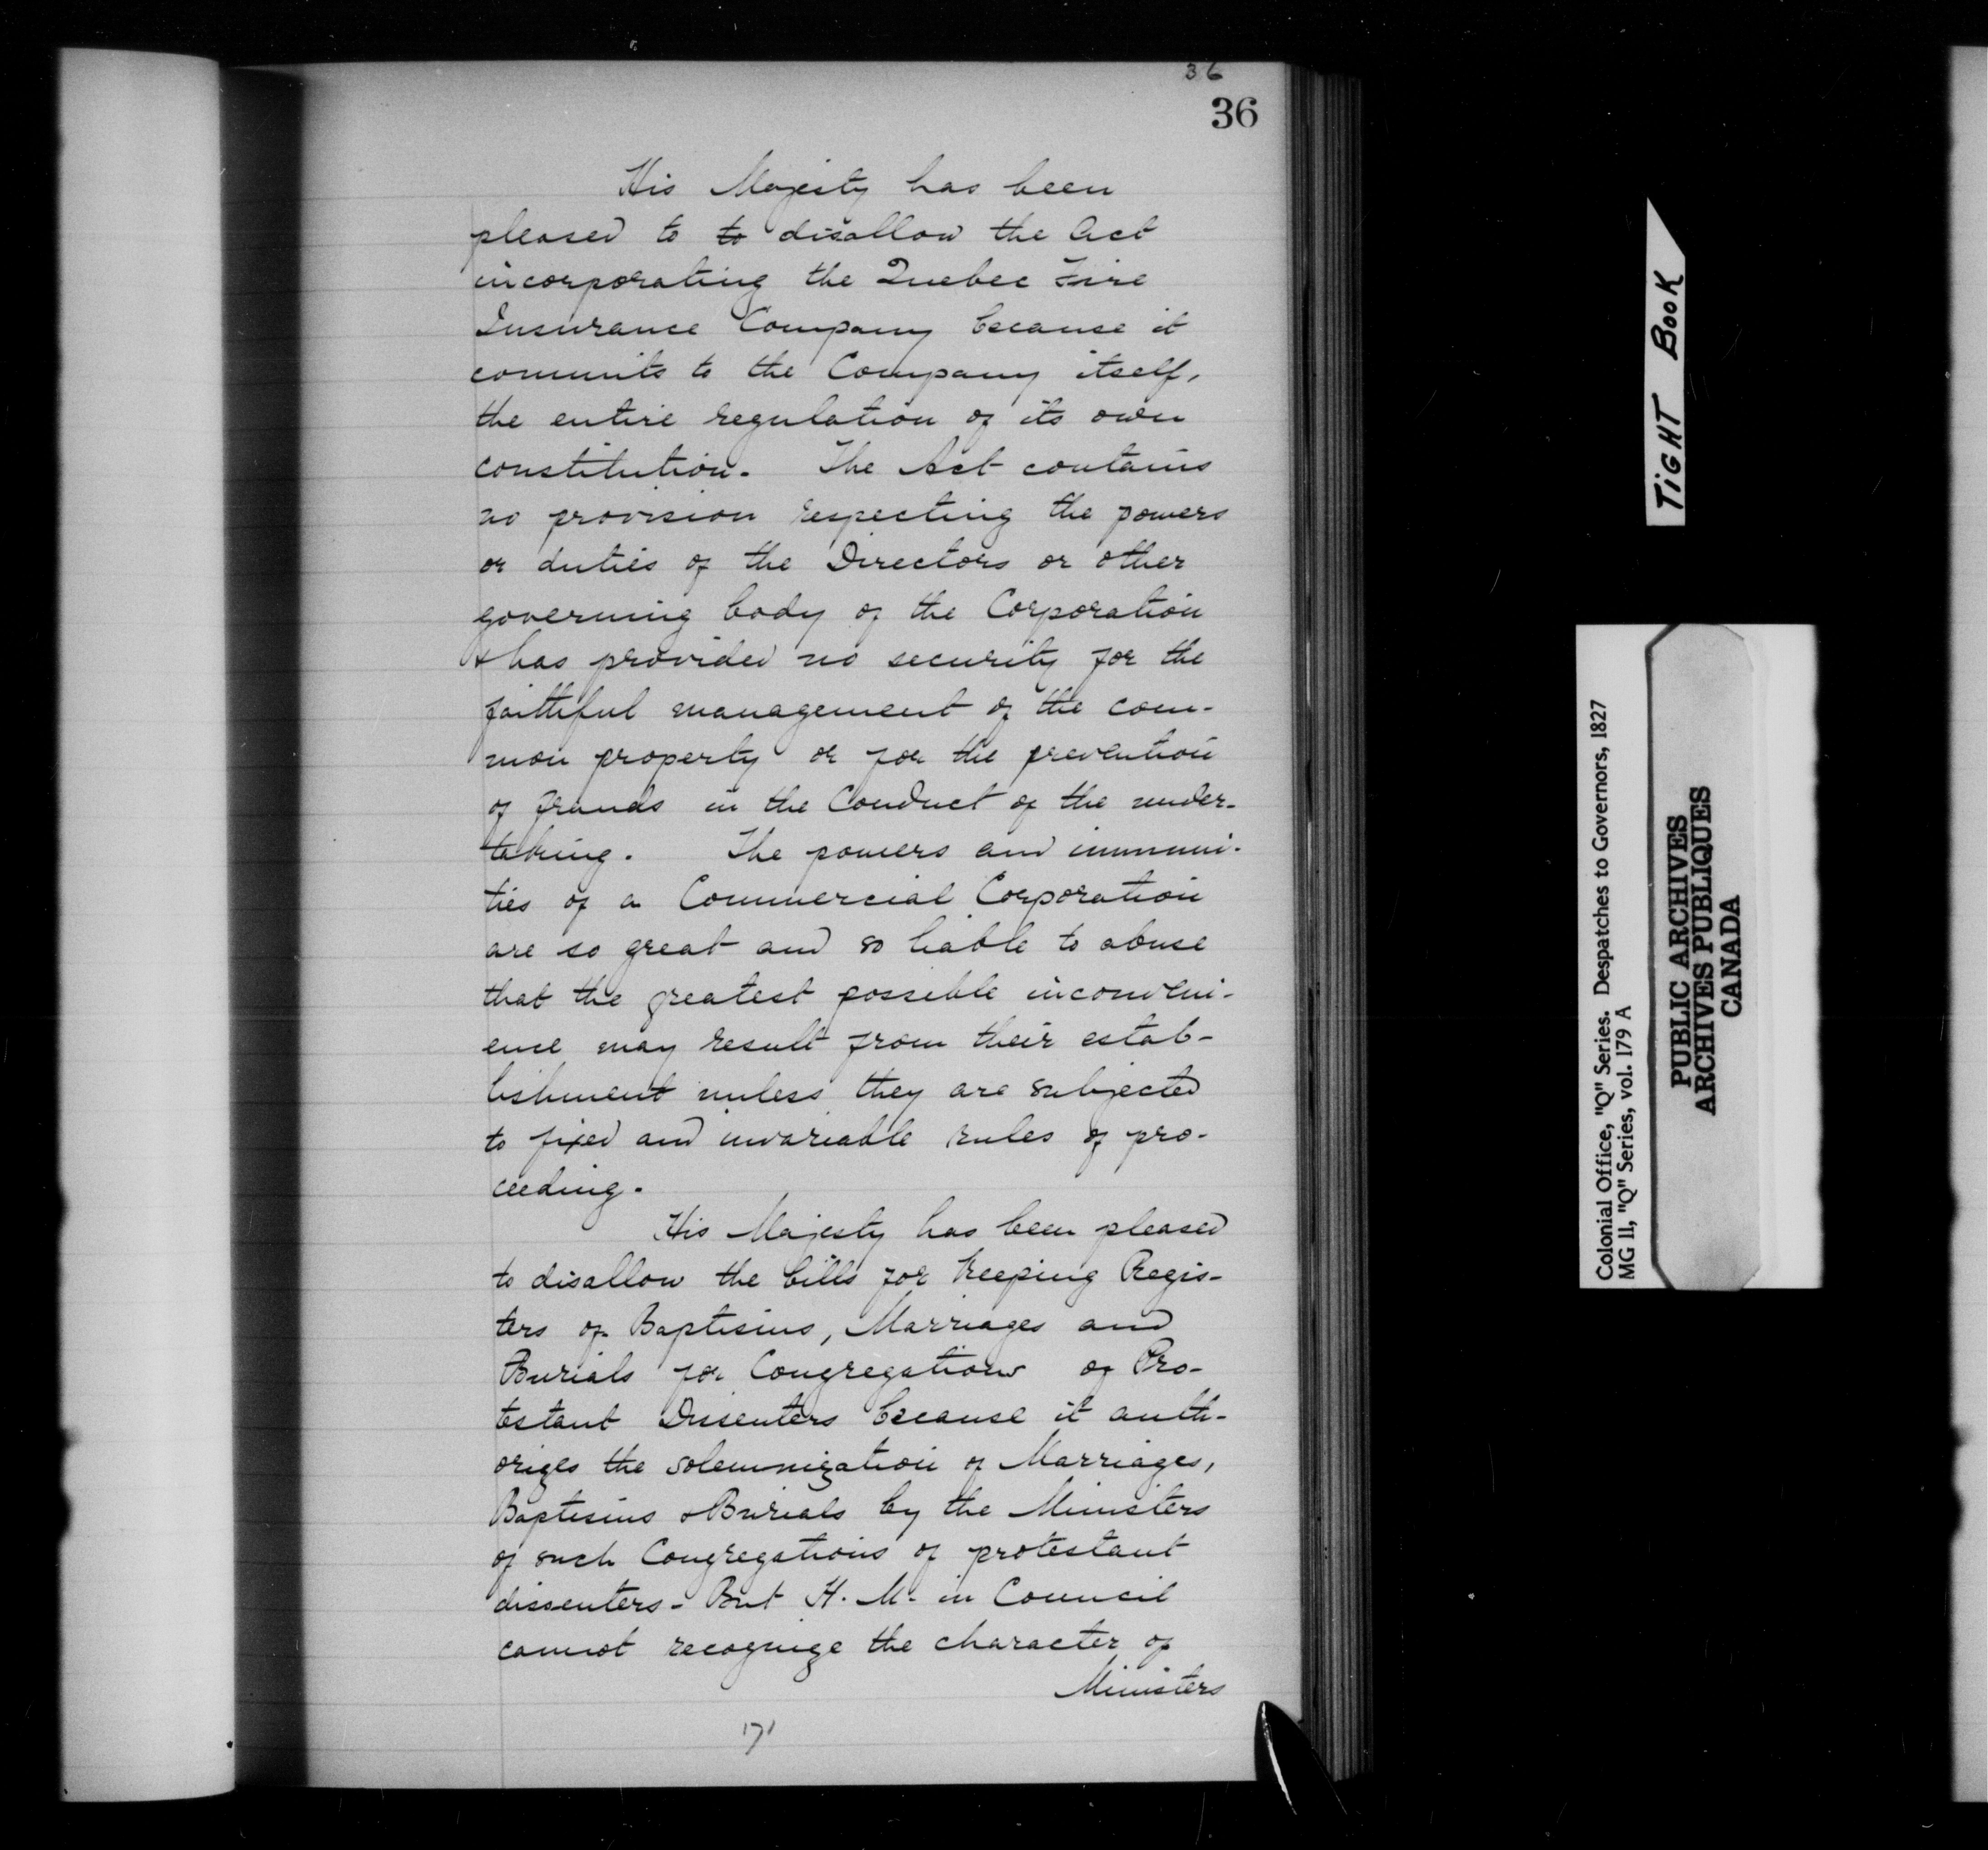 36
36
His Majesty has been
pleased to to disallow the Act
incorporating the Quebec Fire
Insurance Company because it
commits to the Company itself,
the entire regulation of its own
constitution. The Act contains
no provision respecting the powers
or duties of the Directors or other
governing body of the Corporation
& has provided no security for the
faithful management of the com-
mon property or for the prevention
of frauds in the Conduct of the under-
taking. The powers and immuni-
ties of a Commercial Corporation
are so great and so liable to abuse
that the greatest possible inconveni-
ence may result from their estab-
lishment unless they are subjected
to fixed and invariable rules of pro-
ceeding.
His Majesty has been pleased
to disallow the bills for keeping Regis-
ters of Baptisms, Marriages and
Burials for Congregations of Pro-
testant Dissenters because it auth-
orizes the solemnization of Marriages,
Baptisms & Burials by the Ministers
of such Congregations of protestant
dissenters - But H. M. in Council
cannot recognize the character of
Ministers
171
TIGHT BOOK
Colonial Office, "Q" Series. Despatches to Governors, 1827
MG 11, "Q" Series, vol. 179 A
PUBLIC ARCHIVES
ARCHIVES PUBLIQUES
CANADA